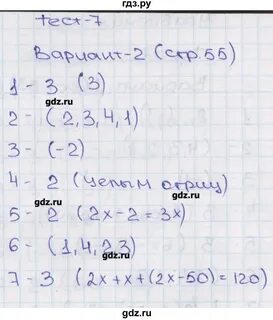 gdz.ru
Тест-7
Вариант-2 (стр.55)
1 - 3 (3)
gdz.ru
gdz.ru
2 - (2,3,4,1)
3 - (-2)
gdz.ru
4 - 2 (целым отриц)
gdz.ru
5 - 2 (2x-2=3x)
gdz.ru
6 - (1,4,2,3)
7 - 3 (2x+x+(2x-50)=120)
gdz.ru
gdz.ru